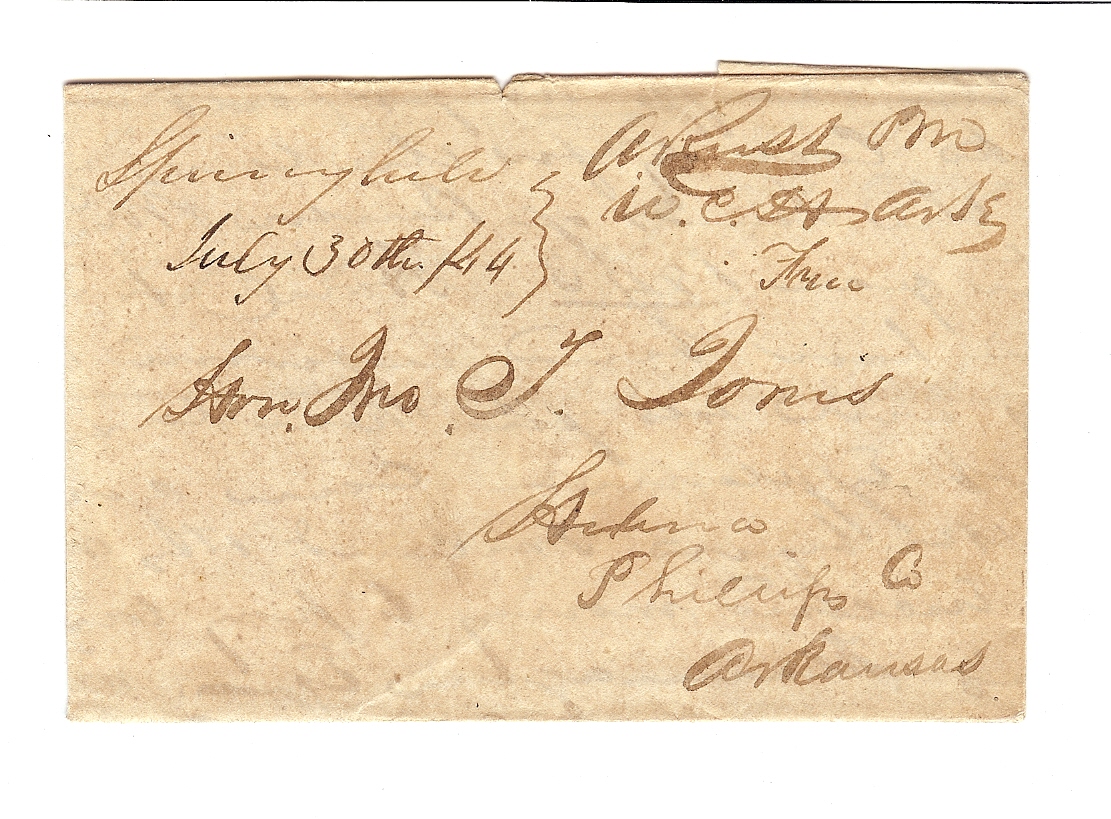 Springhill
July 30th /44
A Rust PM
W.C.H. Arks
Free
Hon. Jno. T. Jones
Helena
Phillips Co
Arkansas